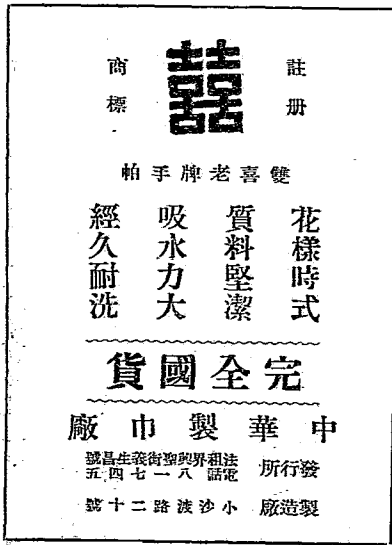 註册
商標
囍
雙喜老牌手帕
花樣時式
質料堅潔
吸水力大
經久耐洗
完全國貨
中華製巾廠
發行所 法租界興聖街義生昌號
電話八一七四五
製造廠 小沙渡路二十號